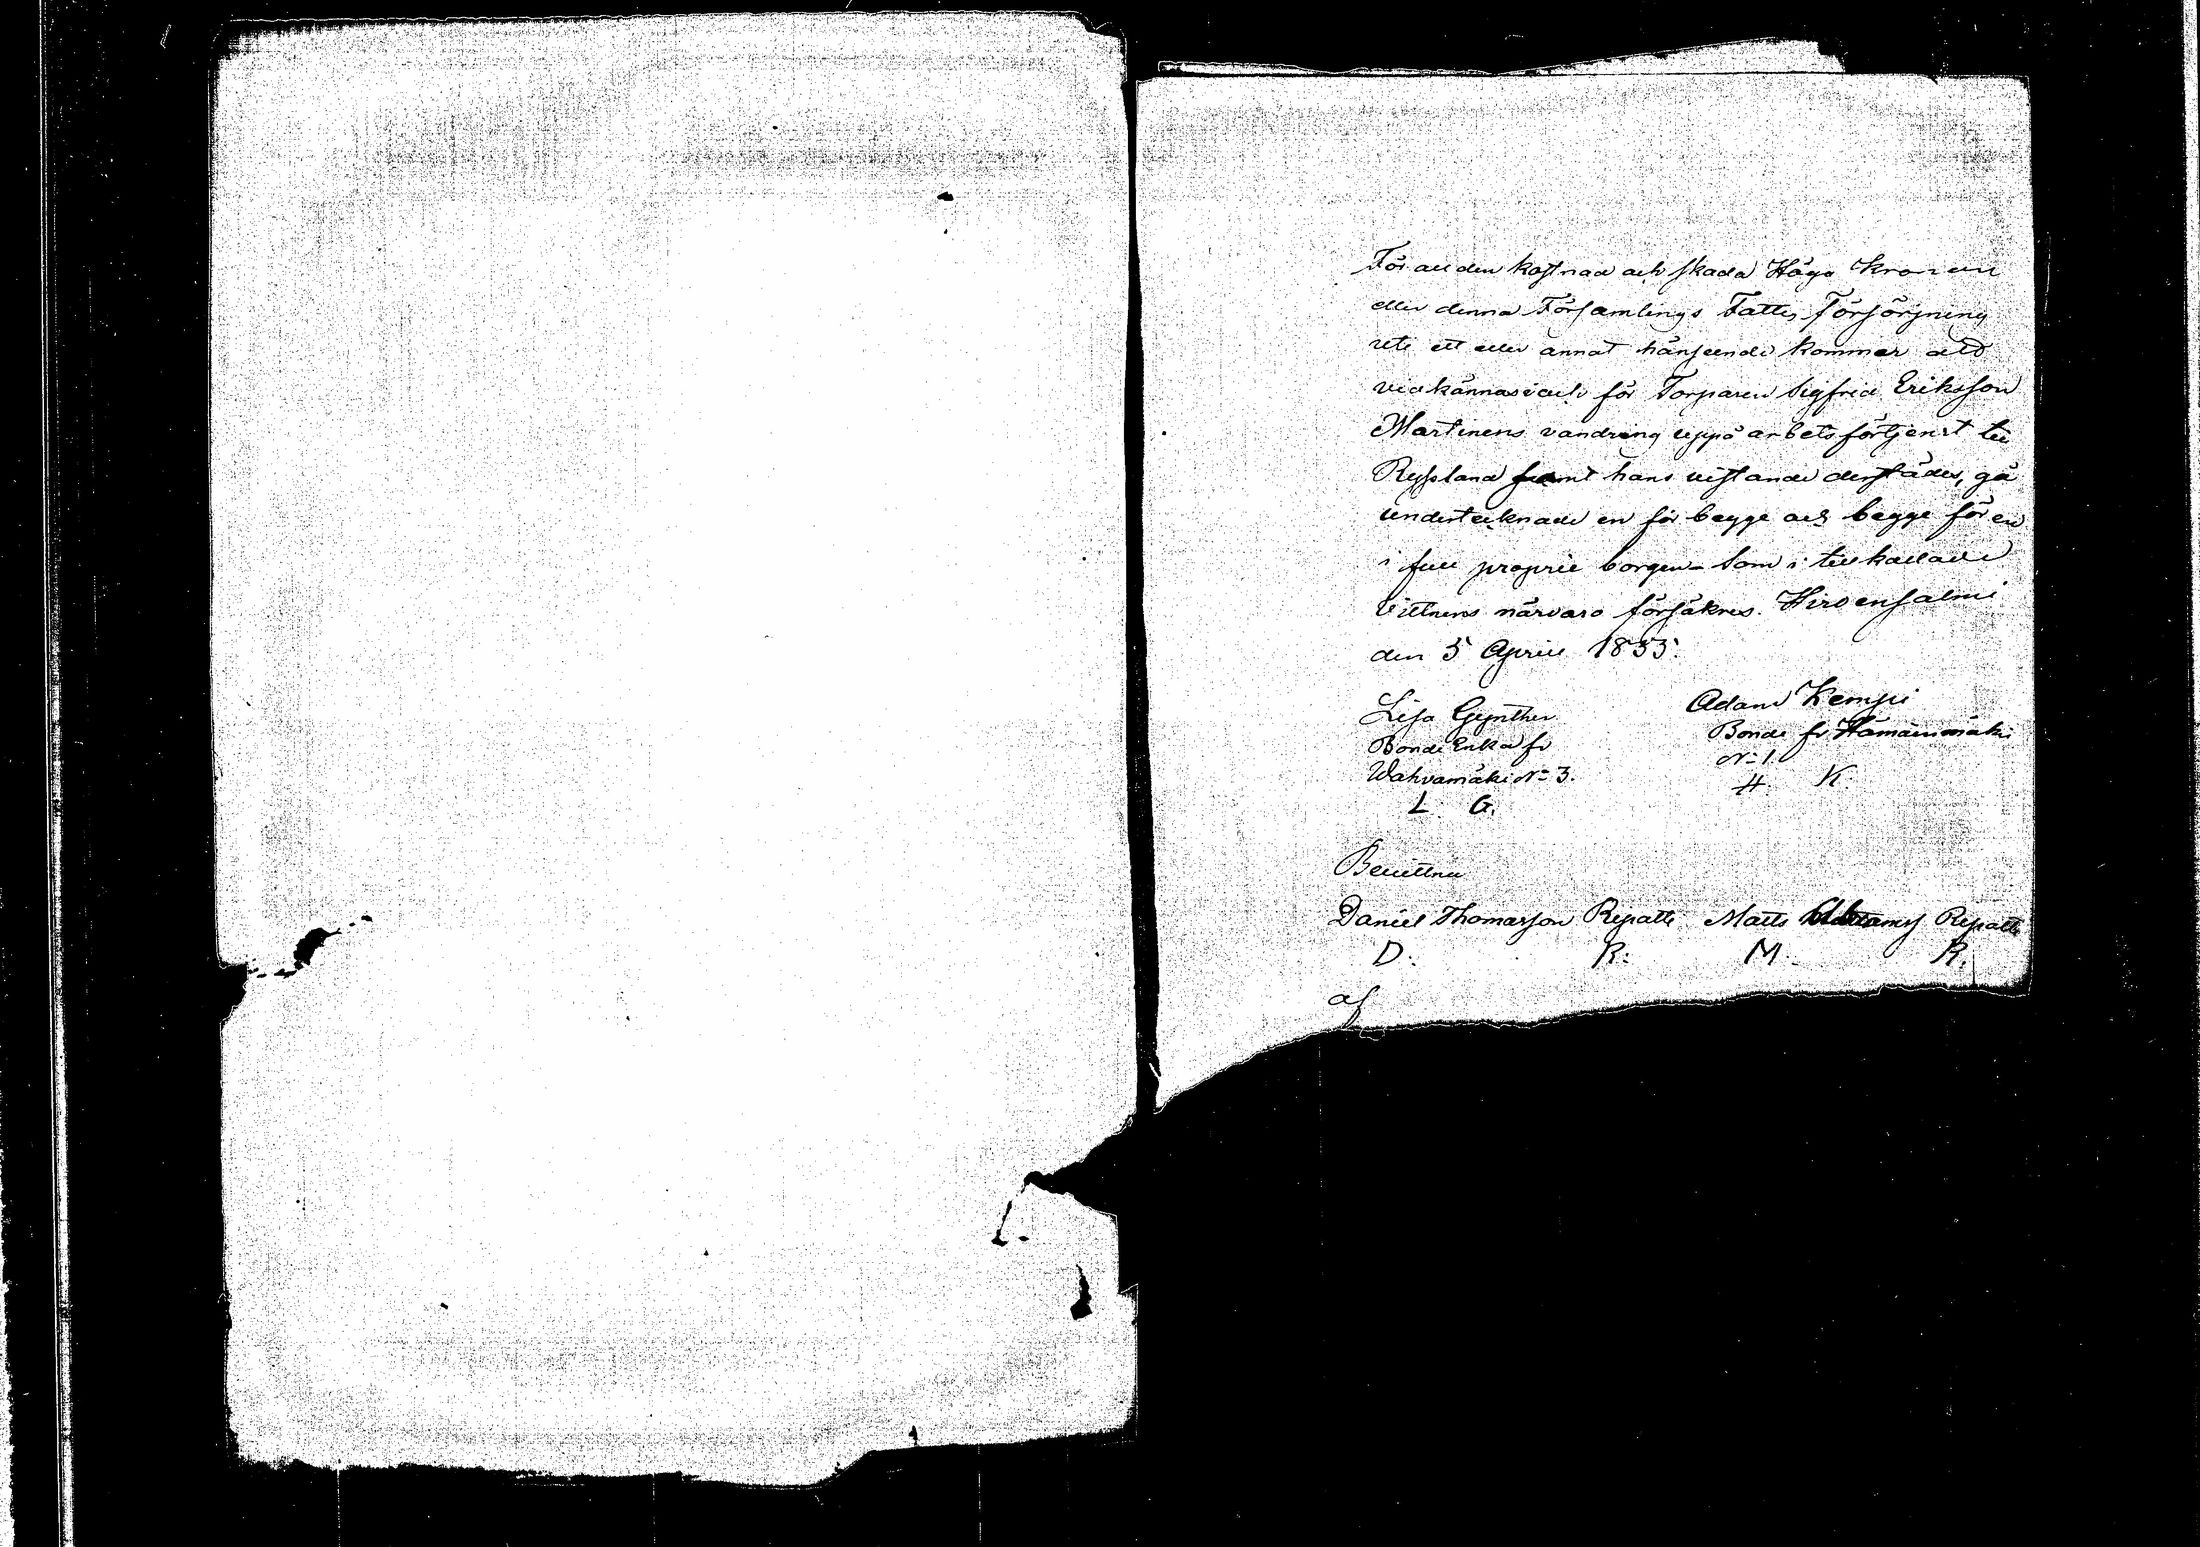 För all den kostnad och skada Höga Kronan
eller denna Församlings Fattig Försörjning
uti ett eller annat hänseende kommer att
vidkännas och för Torparen Sigfrid Eriksson
Martinens vandring uppå arbetsförtjenst till
Ryssland samt hans vistande derstädes, gå
undertecknade en för begge och begge för en
i full proprie borgen som i tillkallade
Vittnens närvaro försäkras. Hirvensalmi
den 5 April 1855.
Lisa Gynther Adam Kemppi
Bonde Enka fr Bonde fr Hämäinmäki
Wahvamäki No 3. No 1.
L. G. H. K.
Bevittna
Daniel Thomasson Repatti Matts Repatti
D. R. M. R.
af